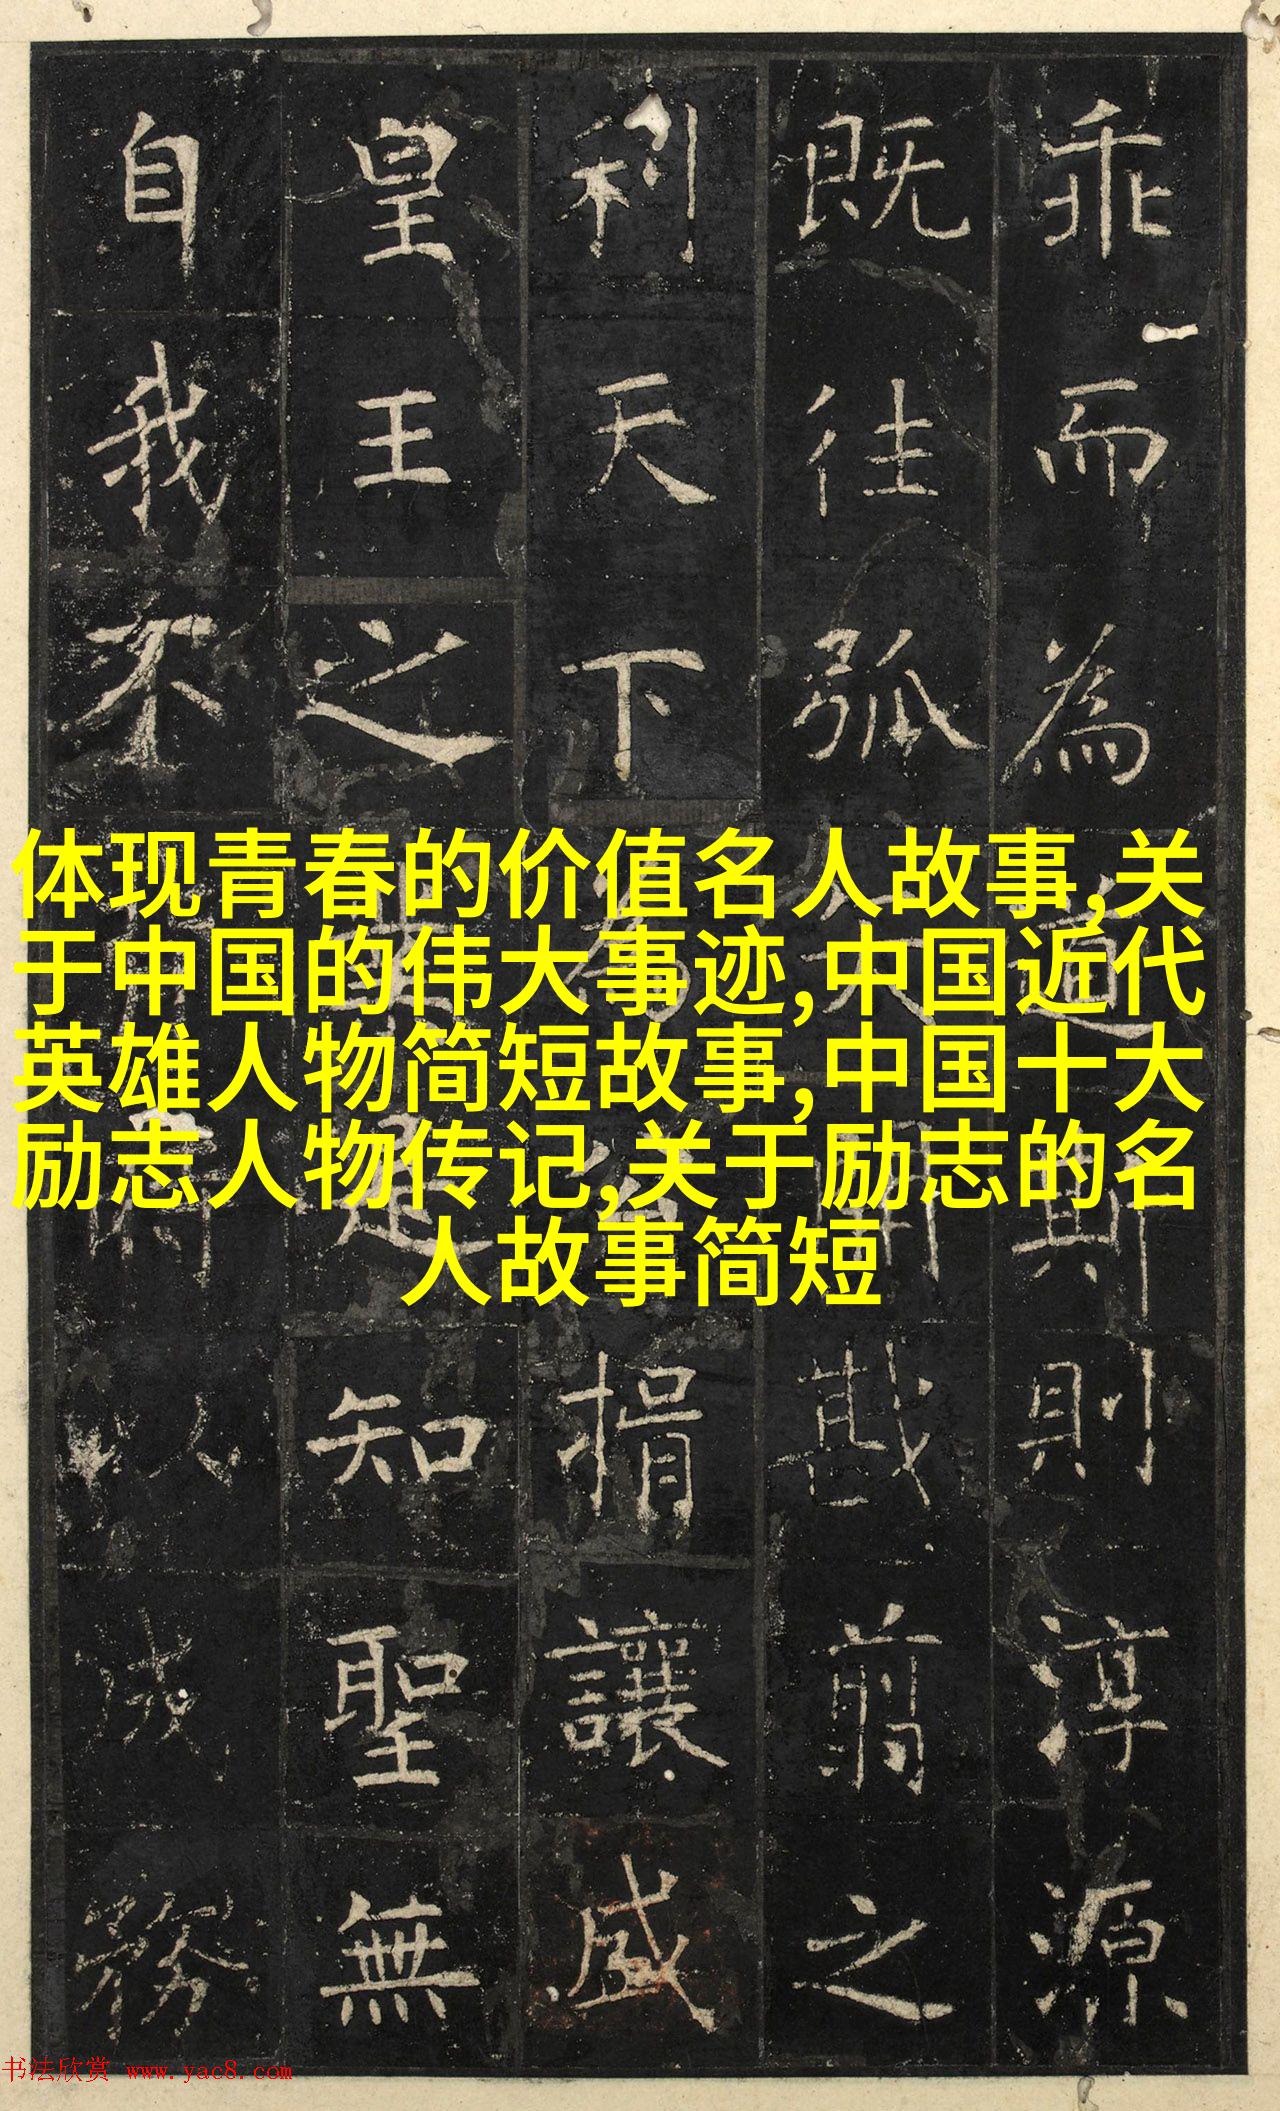 乖而為道斯則淳源
既往弧戡翦之
利天下為捐讓咸
皇王之是知聖無
自我不以成務
体现青春的价值名人故事,关
于中国的伟大事迹,中国近代
英雄人物简短故事,中国十大
励志人物传记,关于励志的名
人故事简短
书法欣赏 www.yac8.com